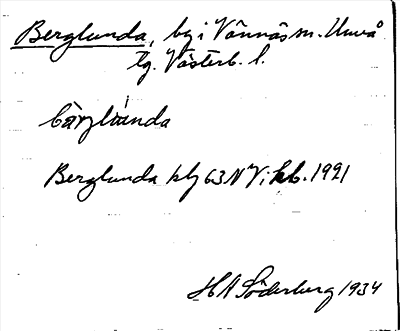 Berglunda, by i Vännäs sn. Umeå
tg. Västerb. l.
bärglúnda
Berglunda klg 63 N V; kb. 1921
H A Söderberg 1934